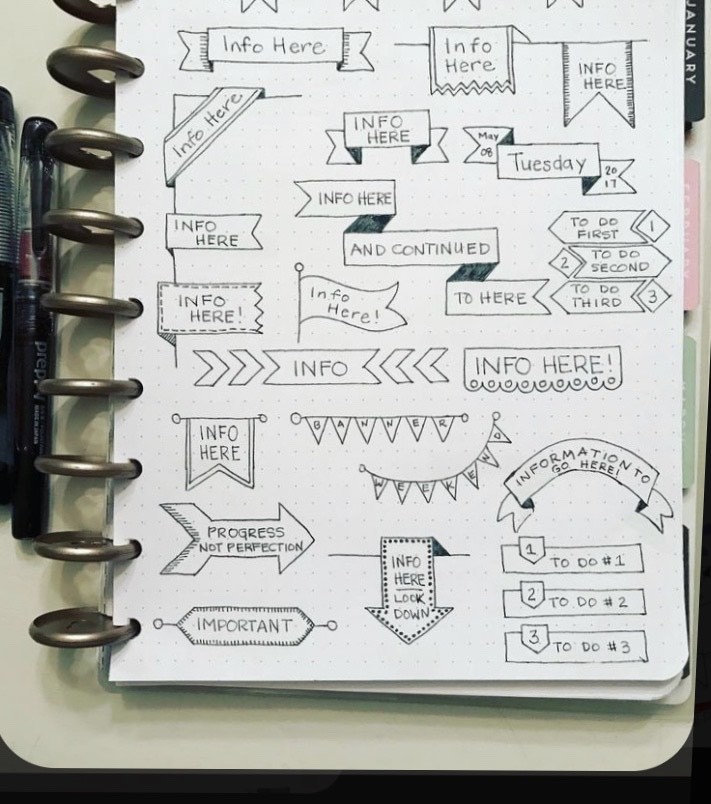 Info Here
Info
Here
INFO
HERE
JANUARY
Info Here
INFO
HERE
May
08
Tuesday
20
17
FEBRUARY
INFO HERE
AND CONTINUED
TO HERE
INFO
HERE
TO DO
FIRST
1
2
TO DO
SECOND
TO DO
THIRD
3
INFO
HERE!
Info
Here!
INFO
INFO HERE!
INFO
HERE
BANNER
WEEKEND
INFORMATION TO
GO HERE!
PROGRESS
NOT PERFECTION
INFO
HERE
LOOK
DOWN
1
TO DO #1
2
TO DO #2
3
TO DO #3
IMPORTANT
preppy